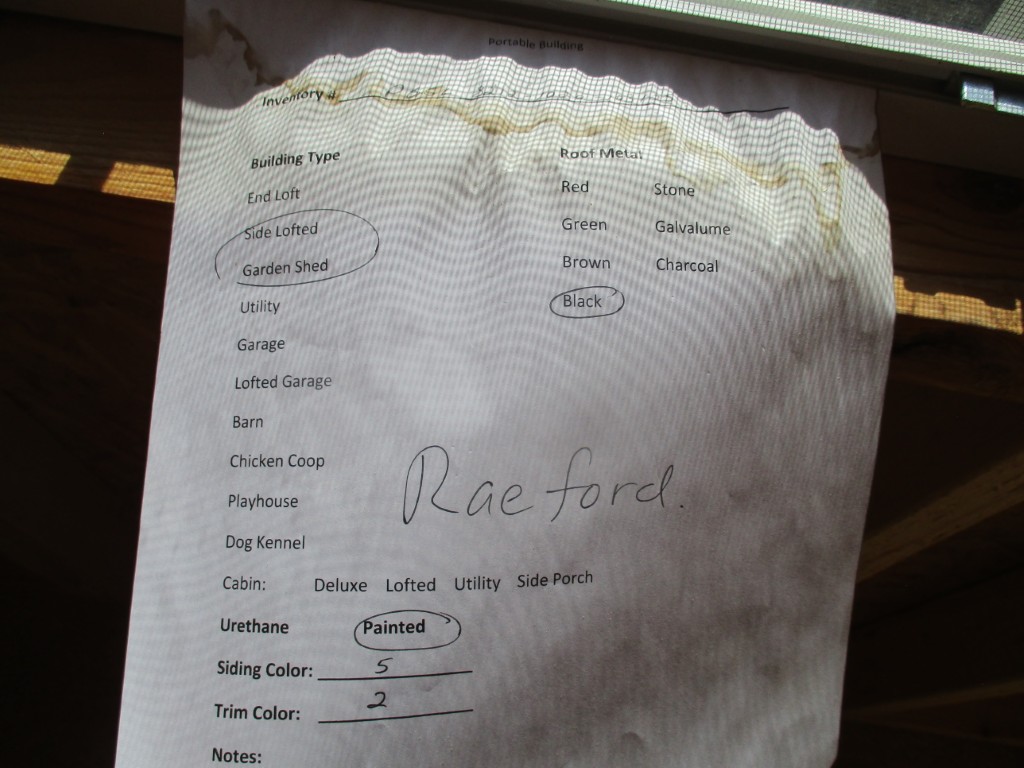 Portable Building
Inventory #
Building Type
End Loft
Side Lofted
Garden Shed
Utility
Garage
Lofted Garage
Barn
Chicken Coop
Playhouse
Dog Kennel
Roof Metal
Red Stone
Green Galvalume
Brown Charcoal
Black
Raeford.
Cabin: Deluxe Lofted Utility Side Porch
Urethane Painted
Siding Color: 5
Trim Color: 2
Notes: